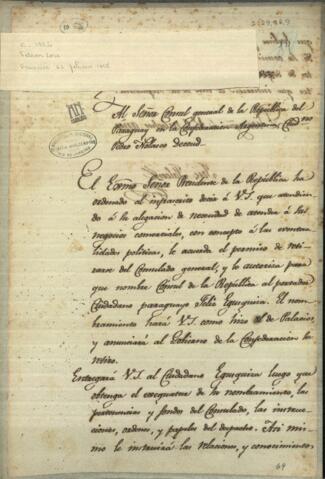 Al Señor Consul general de la República del
Paraguay en la Confederacion Argentina Ciud.no
Nicolas Decoud.
El Exmo Señor Presidente de la República ha
ordenado al infrascrito decir á V.S. que atendien
do á la alegacion de necesidad de atender á sus
negocios comerciales, con concepto á las eventua
lidades políticas, le acuerda el permiso de reti
rarse del Consulado general, y le autoriza para
que nombre Consul de la República al
Ciudadano paraguayo Felix Egusquiza. El nom
bramiento hará V.S. como hizo el de Palacios,
y anunciará al Gobierno de la Confederacion
su retiro.
Entregará V.S. al Ciudadano Egusquiza luego que
obtenga el exequatur de su nombramiento, las
pertenencias y fondos del Consulado, las instruc
ciones, ordenes, y papeles del despacho. Asi mis
mo le instruirá las relaciones, y conocimientos
69